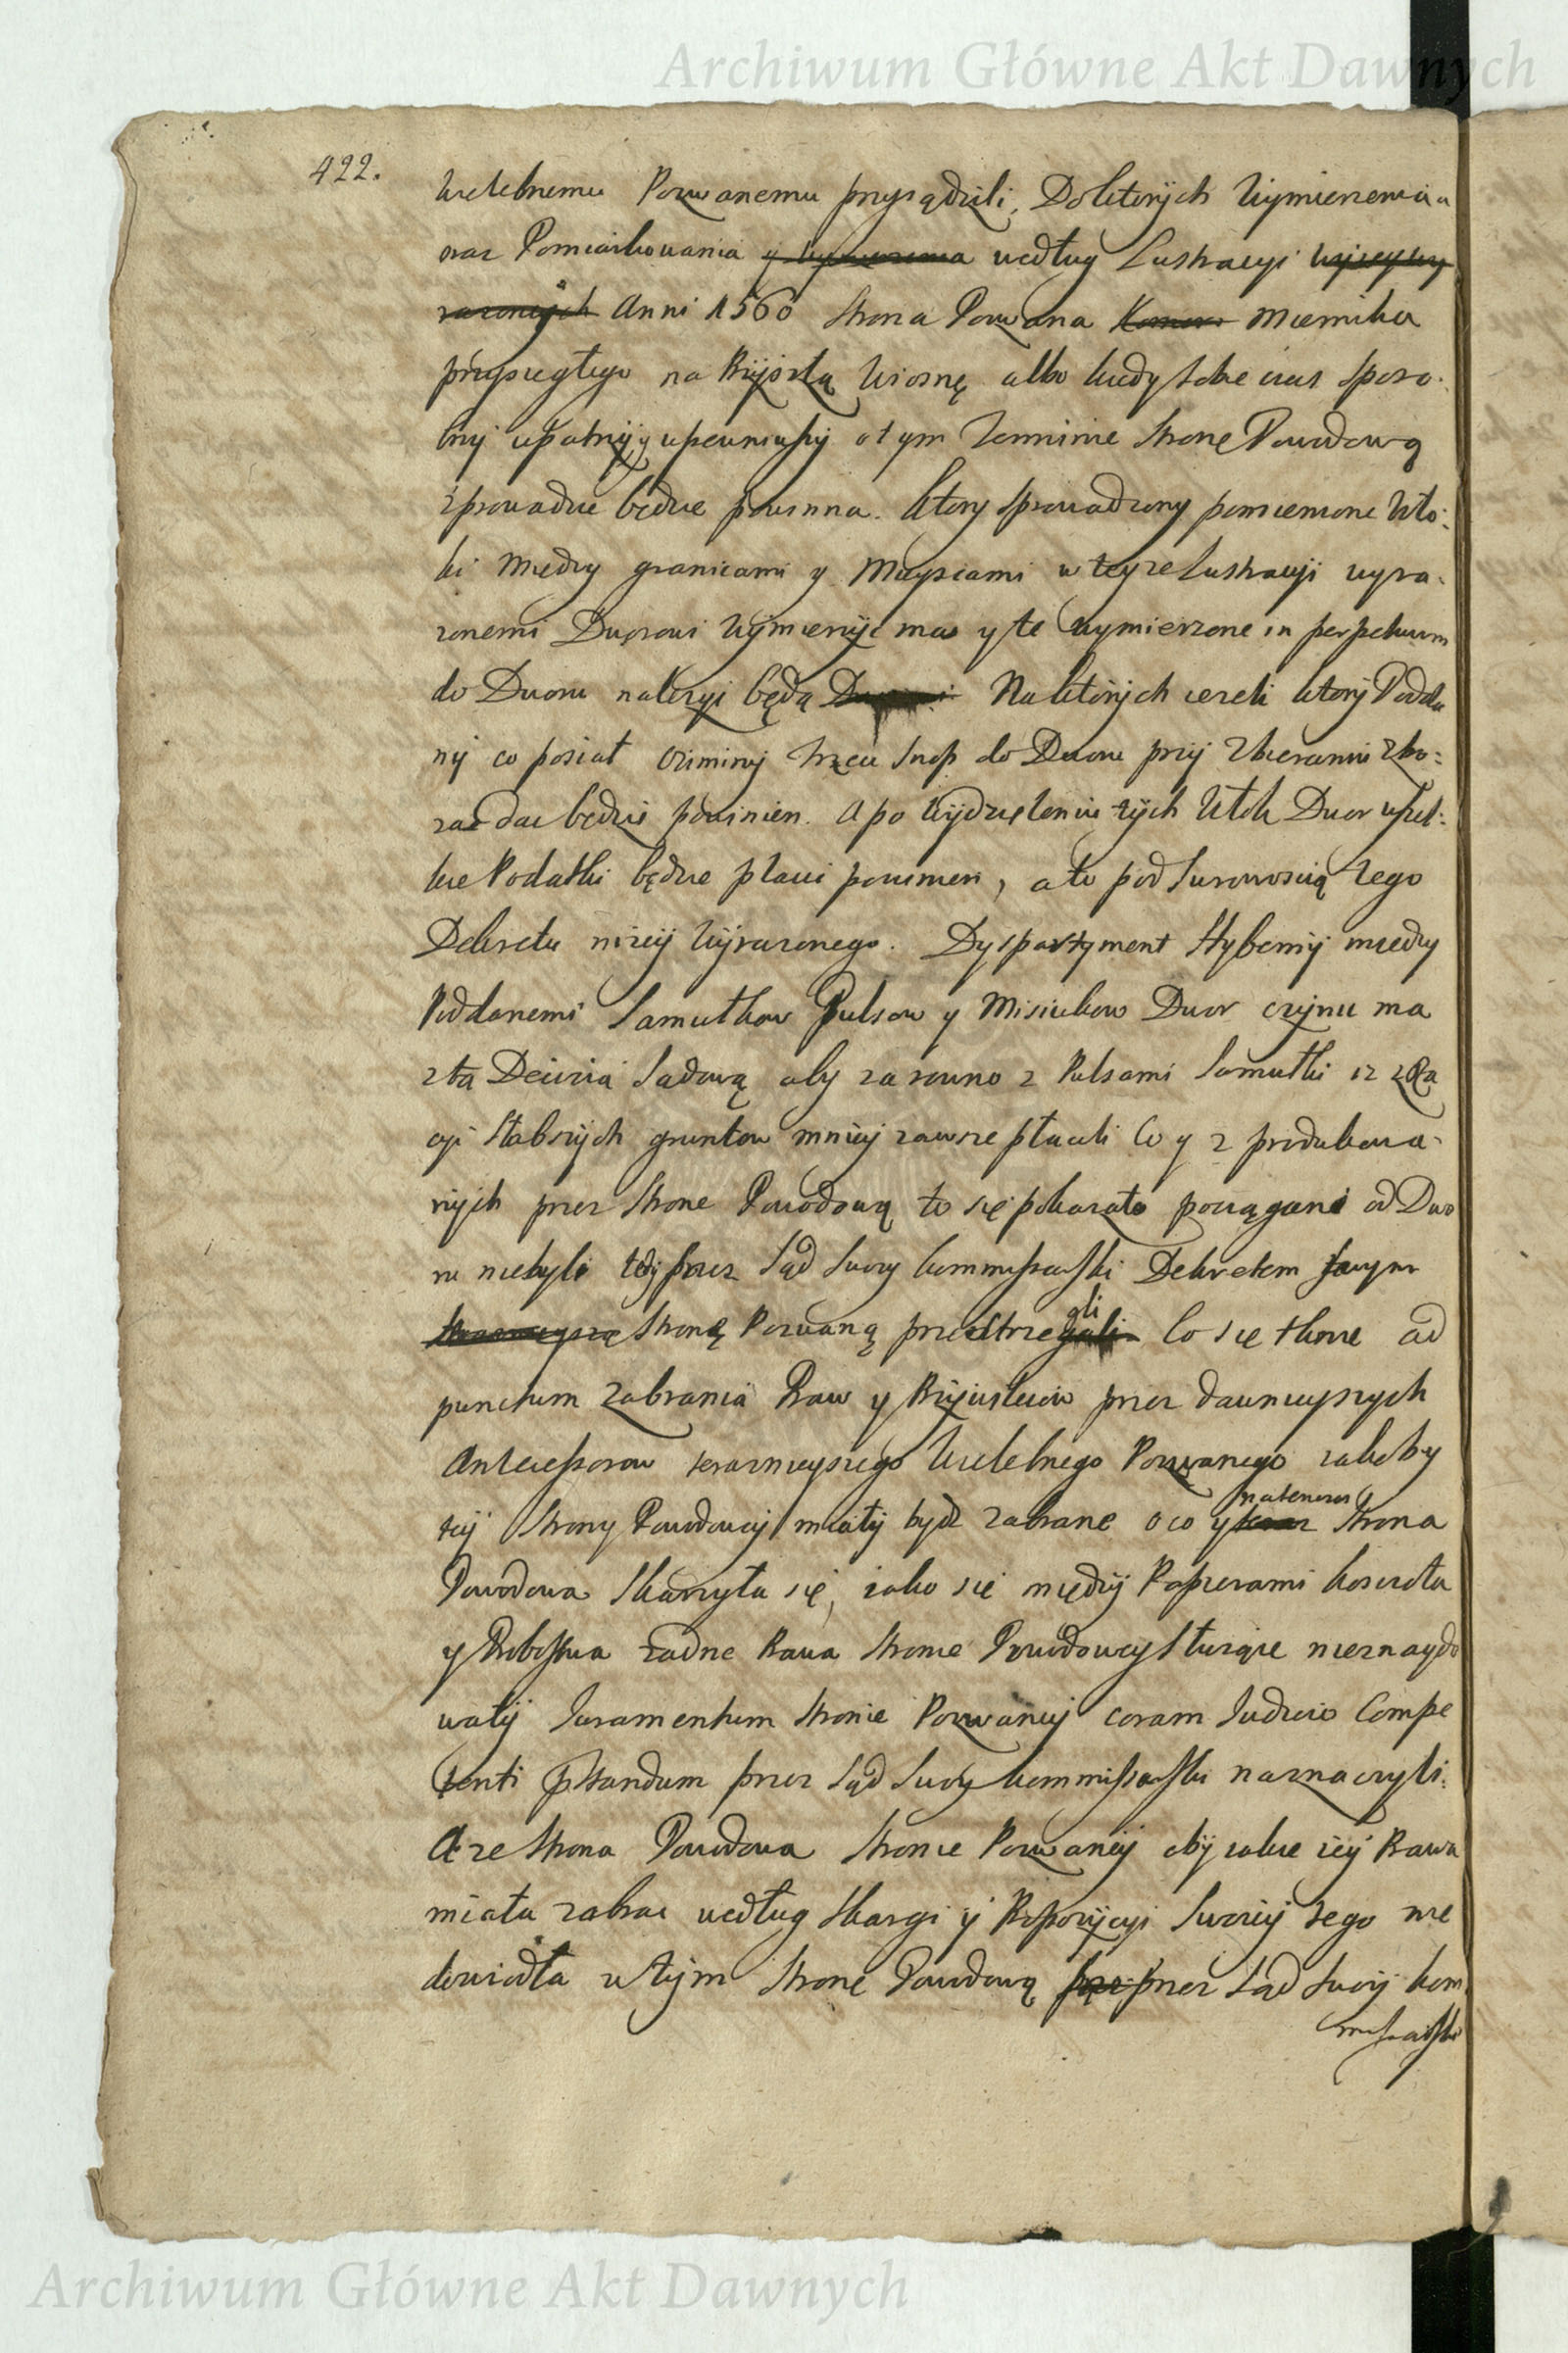 Archiwum Główne Akt Dawnych
422.
Wielebnemu Pozwanemu przysądzili, Doktorych Wymierzenia
oraz Pomiarkowania według Lustracyi
Anni 1560 Strona Pozwana Miernika
przysięgłego na Przyszłą Wiosnę albo kiedy sobie czas sposo-
bny upatrzy, y upewniwszy o tym Terminie Stronę Powodową
zprowadzic będzie powinna. Ktory sprowadzony pomienione Wło-
ki między granicami y Mieyscami w teyze Lustracyi wyra-
zonemi Dworowi Wymierzyć ma y te wymierzone in perpetuum
do Dworu nalezyć będą Na ktorych iezeli ktory Podda
ny co posiał oziminy trzeci Snop do Dworu przy Zbieraniu Zbo-
za dac będzie powinien. A po Wydzieleniu tych Włok Dwor wszel-
kie Podatki będzie płacić powinien, a to pod Surowoscią tego
Dekretu nizey Wyrazonego. Dyspartyment Hyberny między
Poddanemi Samułkow Pulsow y Misiukow Dwor czynic ma
z tą Decizią Sadową aby zarowno z Pulsami Samułki iz z Ra
cyi Słabszych gruntow mniey zawsze płacili Co y z produkowa-
nych przez Stronę Powodową to się pokazało pociągani od Dwo
ru niebyli tedy przez Sąd Swoy Kommissarski Dekretem swym
Stronę Pozwaną przestrzegli Co się tknie ad
punctum Zabrania Praw y Przywileiow przez dawnieyszych
Antecessorow teraznieyszego Wielebnego Pozwanego jakoby
tey Strony Powodowey miały bydź zabrane o co y natenczas Strona
Powodowa Skarzyła się, iako się między Papierami koscioła
y Probostwa zadne Prawa Stronie Powodowey Słuzące nieznaydo
wały Juramentum Stronie Pozwaney coram Judicio Compe
tenti przez Sąd Swoy kommissarski naznaczyli.
A ze Strona Powodowa Stronie Pozwaney aby iakie iey Prawa
miała zabrac według Skargi y Propozycyi Swoiey tego nie
dowiodła w tym Stronę Powodową przez Sąd Swoy kom
missarski
Archiwum Główne Akt Dawnych